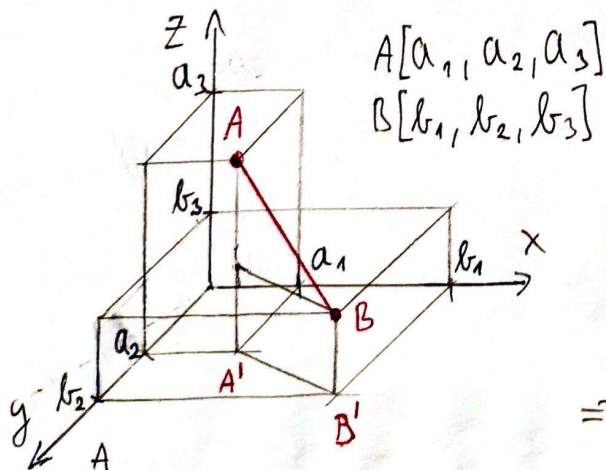 z
a₃
A[a₁, a₂, a₃]
A
B[b₁, b₂, b₃]
b₃
a₁
b₁
x
B
a₂
A'
b₂
B'
y
A
=